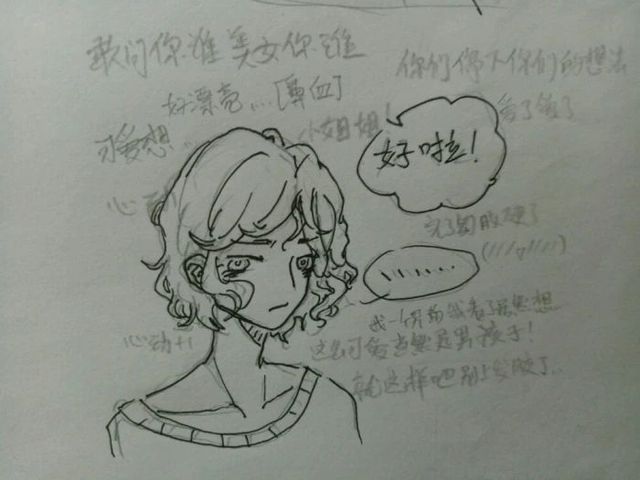 敢问你谁美女你谁
你们停下你们的想法
好漂亮...[鼻血]
可爱想
小姐姐!
好啦!
心动
(///▽///)
......
我一个月前就看了居然想
心动+1
这么可爱当然是男孩子!
就这样吧别上发胶了..